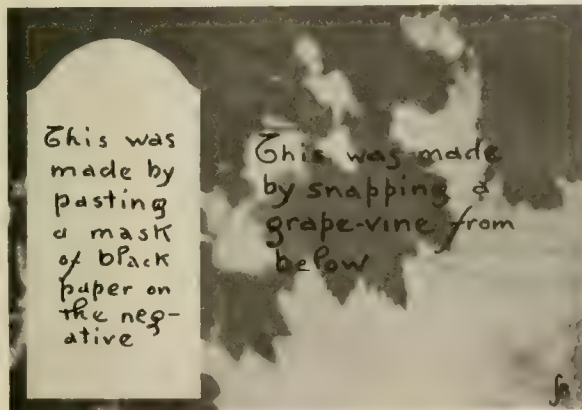 This was
made by
pasting
a mask
of black
paper on
the neg-
ative
This was made
by snapping a
grape-vine from
below